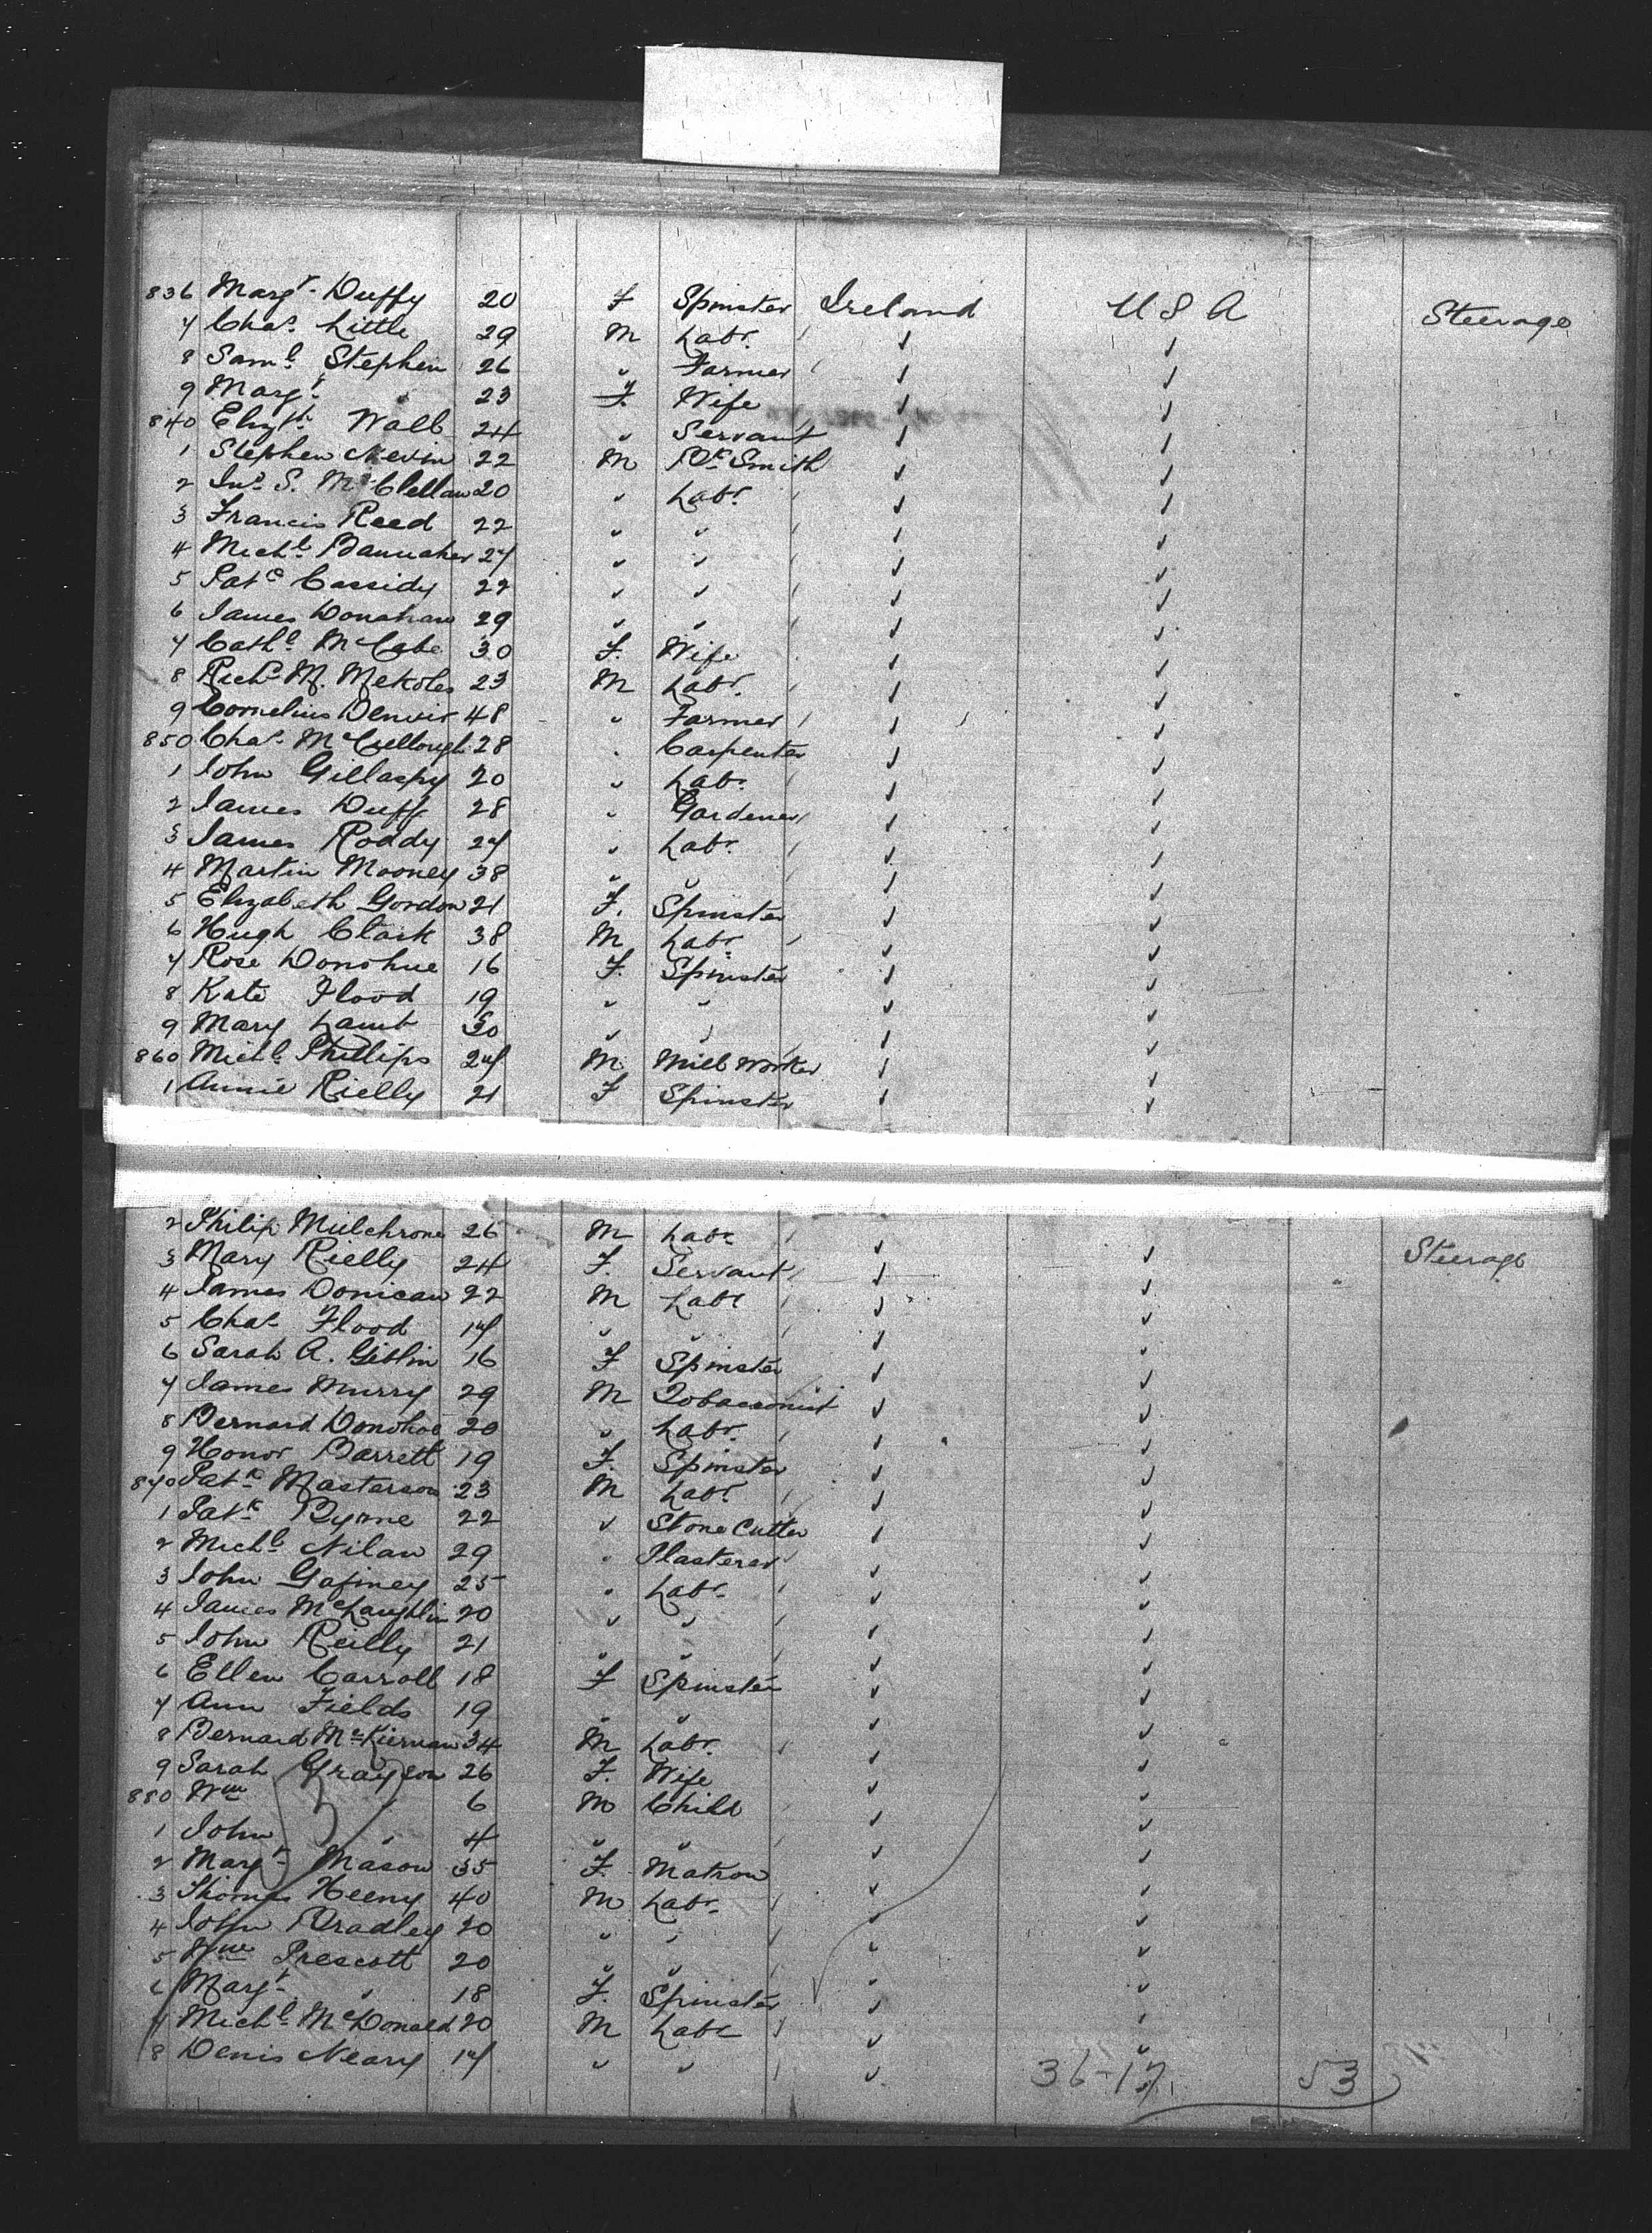 836 Margt Duffy 20 F Spinster Ireland U S A Steerage
7 Chas. Little 29 M Labr. " "
8 Saml. Stephen 26 " Farmer " "
9 Margt. " 23 F. Wife " "
840 Elizth. Wall 24 " Servant " "
1 Stephen Nevin 22 M Bk Smith " "
2 Jno. S. McClellan 20 " Labr. " "
3 Francis Reed 22 " " " "
4 Michl. Bannaher 27 " " " "
5 Patk Cassidy 22 " " " "
6 James Donahan 29 " " " "
7 Cath. McCabe 30 F. Wife " "
8 Richd. M. 23 M Labr. " "
9 Cornelius Denvir 48 " Farmer " "
850 Chas. McCullough 28 " Carpenter " "
1 John Gillaspy 20 " Labr. " "
2 James Duff 28 " Gardener " "
3 James Roddy 27 " Labr. " "
4 Martin Mooney 38 " " " "
5 Elizabeth Gordon 21 F. Spinster " "
6 Hugh Clark 38 M Labr " "
7 Rose Donohue 16 F. Spinster " "
8 Kate Flood 19 " " " "
9 Mary Lamb 30 " " " "
860 Michl. Phillips 27 M Mill Worker " "
1 Annie Rielly 21 F Spinster " "
2 Philip Mulchrone 26 M Labr " " Steerage
3 Mary Rielly 24 F. Servant " "
4 James Donican 22 M Labr " "
5 Chas. Flood 17 " " " "
6 Sarah A. Giblin 16 F Spinster " "
7 James Murry 29 M Tobacconist " "
8 Bernard Donohoe 20 " Labr. " "
9 Honor Barrett 19 F. Spinster " "
870 Patk. Masterson 23 M Labr. " "
1 Patk. Byrne 22 " Stone Cutter " "
2 Michl. Nilan 29 " Plasterer " "
3 John Gafiney 25 " Labr. " "
4 James McLaughlin 20 " " " "
5 John Reilly 21 " " " "
6 Ellen Carroll 18 F Spinster " "
7 Ann Fields 19 " " " "
8 Bernard McKiernan 34 M Labr. " "
9 Sarah Grayson 26 F. Wife " "
880 Wm " 6 M Child " "
1 John " 4 " " " "
2 Margt. Mason 35 F. Matron " "
3 Thomas Heeny 40 M Labr. " "
4 John Bradley 20 " " " "
5 Wm Prescott 20 " " " "
6 Margt. " 18 F. Spinster " "
7 Michl. McDonald 20 M Labr " "
8 Denis Neary 17 " " " "
36-17 53